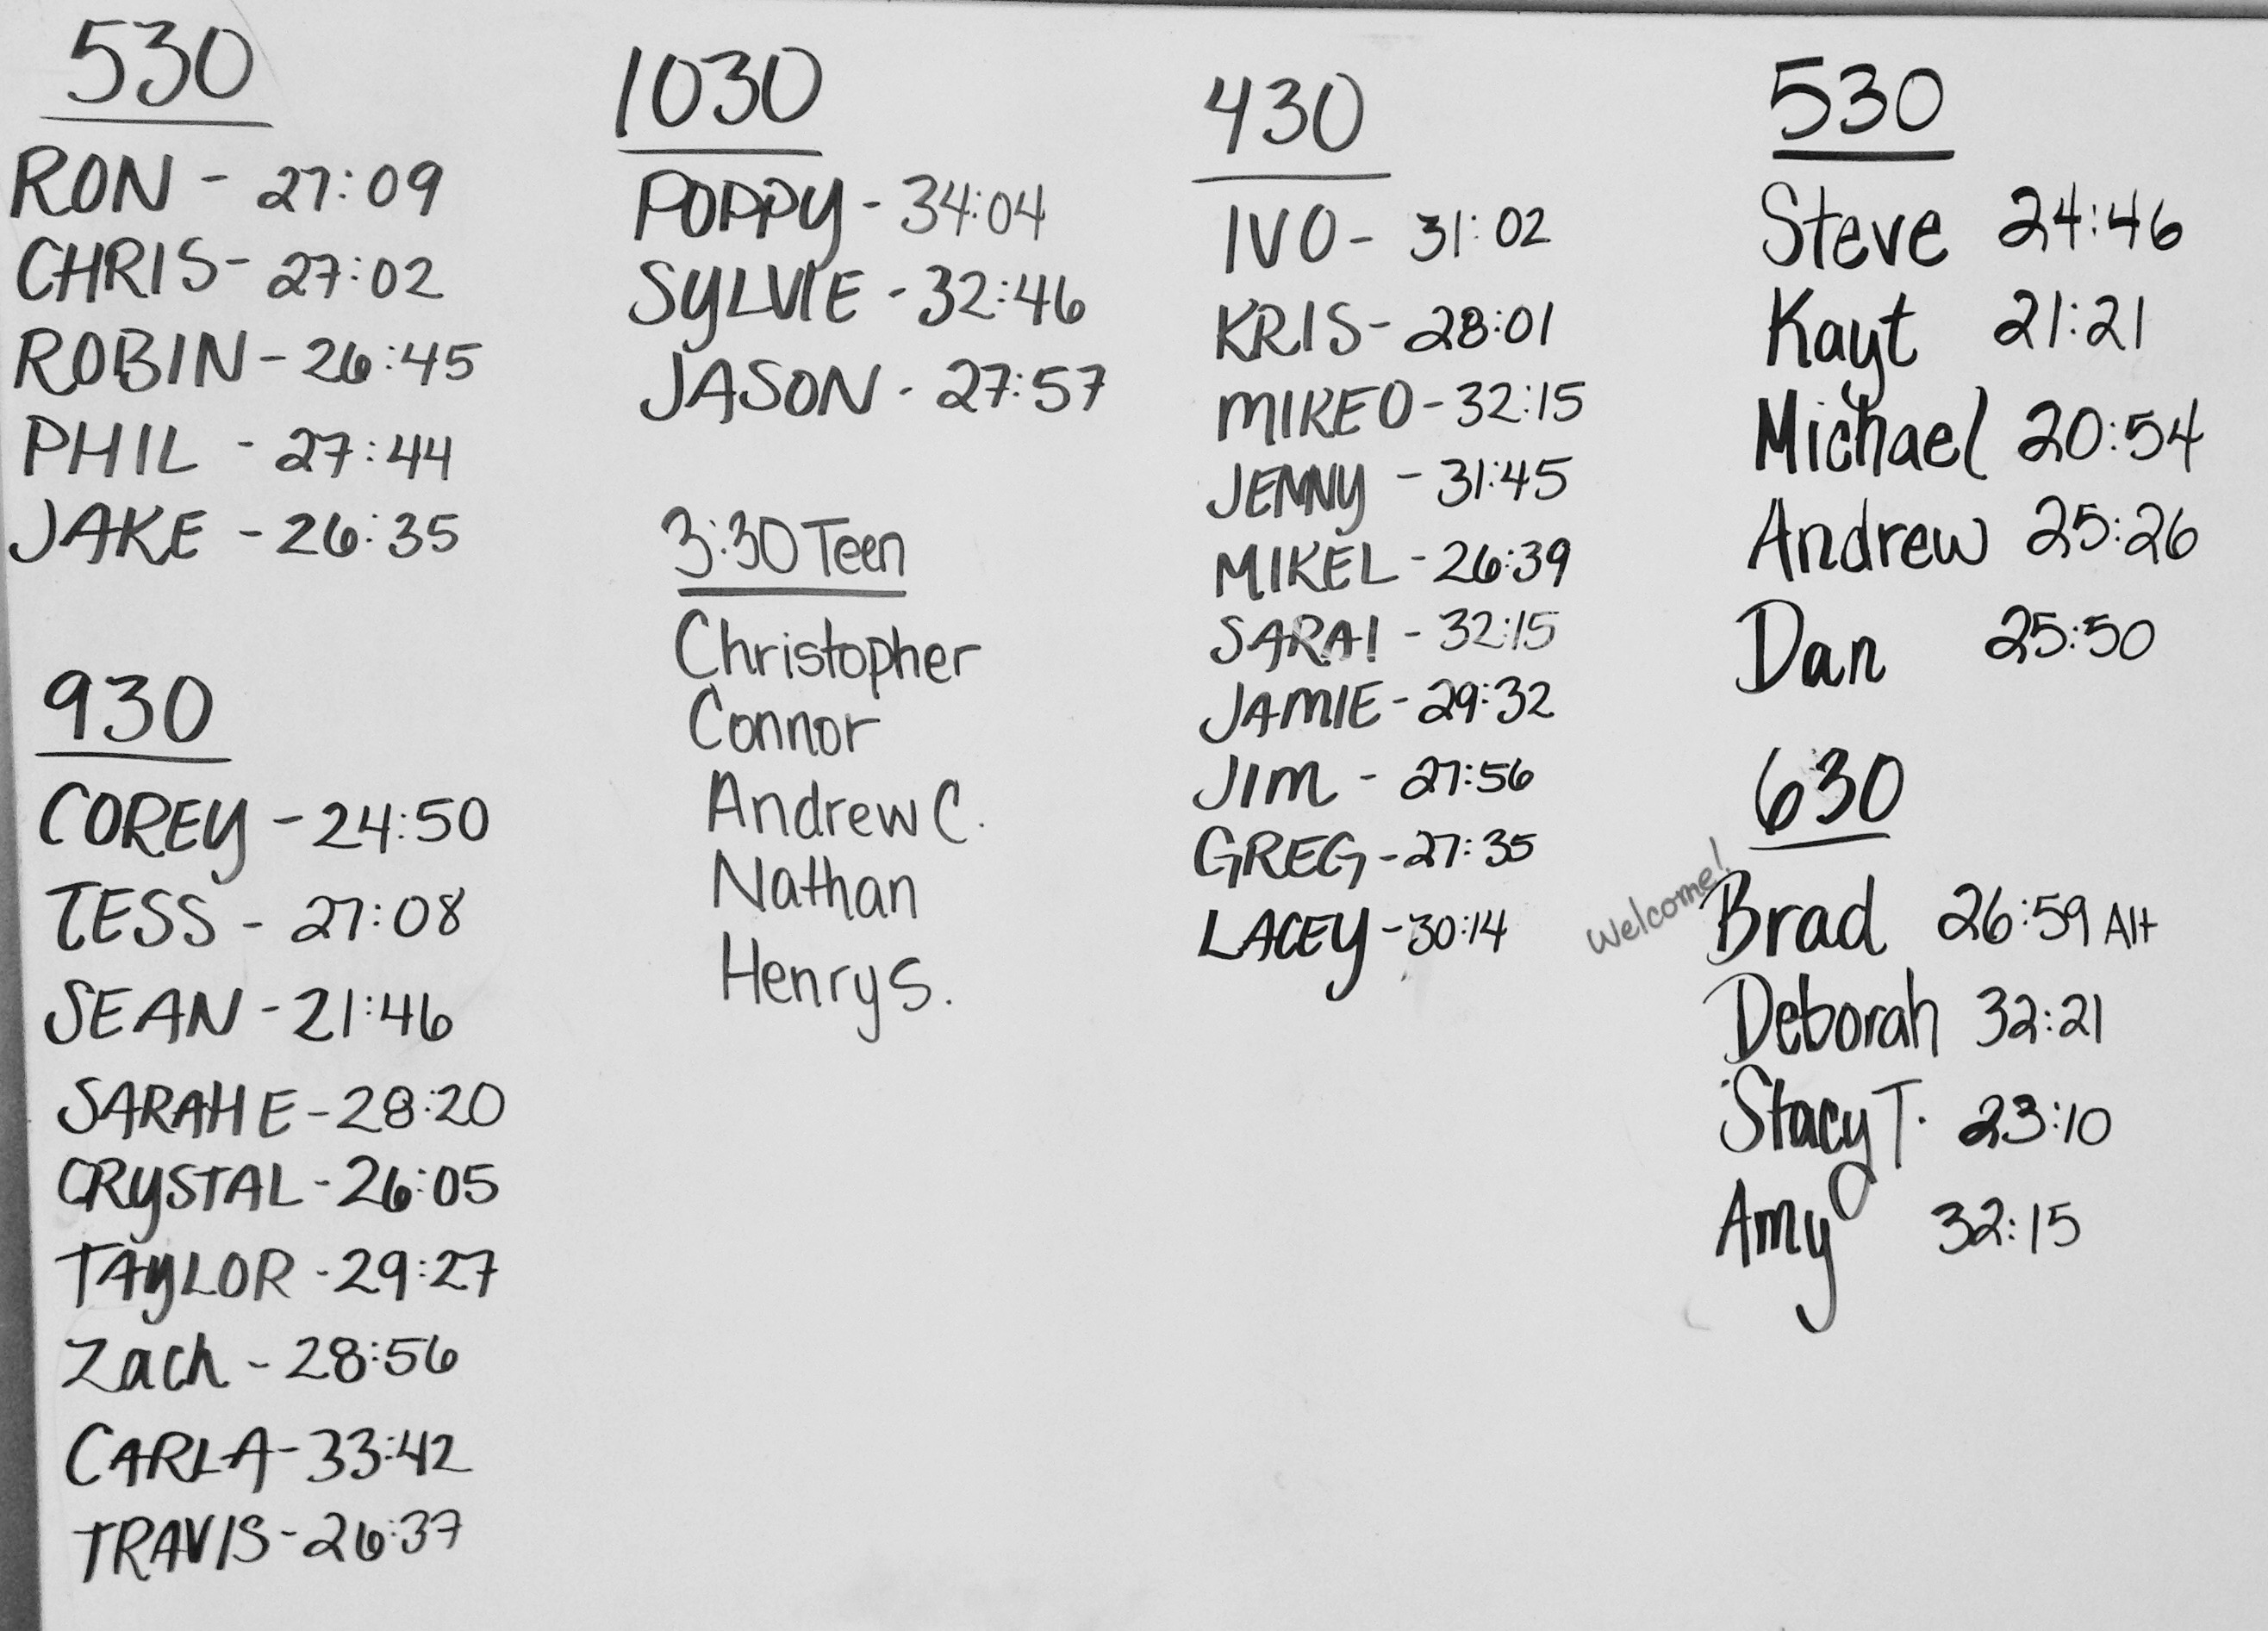 530
RON - 27:09
CHRIS - 27:02
ROBIN - 26:45
PHIL - 27:44
JAKE - 26:35
930
COREY - 24:50
TESS - 27:08
SEAN - 21:46
SARAH E - 28:20
CRYSTAL - 26:05
TAYLOR - 29:27
Zach - 28:56
CARLA - 33:42
TRAVIS - 26:37
1030
POPPY - 34:04
SYLVIE - 32:46
JASON - 27:57
3:30 Teen
Christopher
Connor
Andrew C.
Nathan
Henry S.
430
IVO - 31:02
KRIS - 28:01
MIKE O - 32:15
JENNY - 31:45
MIKE L - 26:39
SARAI - 32:15
JAMIE - 29:32
JIM - 27:56
GREG - 27:35
LACEY - 30:14
530
Steve 24:46
Kayt 21:21
Michael 20:54
Andrew 25:26
Dan 25:50
630
Welcome!
Brad 26:59 Alt
Deborah 32:21
Stacy T. 23:10
Amy 32:15